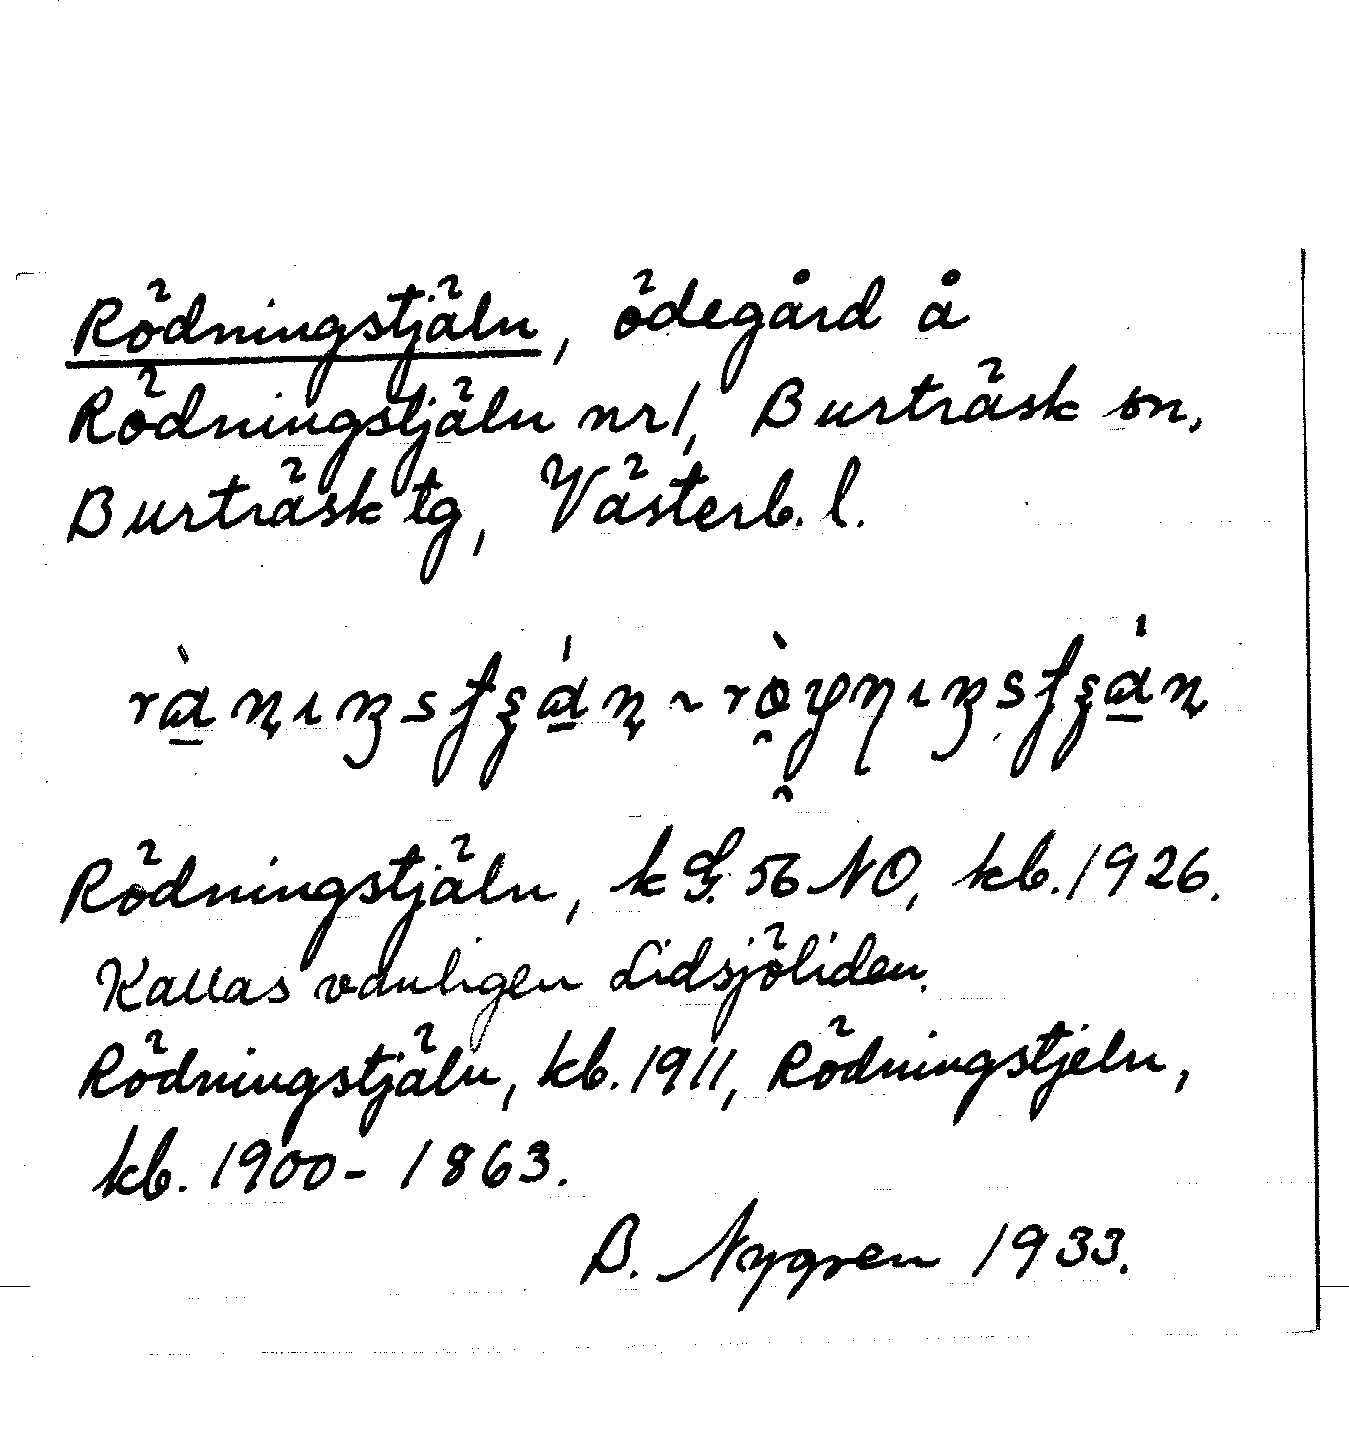 Rödningstjäln, ödegård å
Rödningstjäln nr 1, Burträsk sn,
Burträsk tg, Västerb. l.
Rödningstjäln, k G. 56 NO, kb. 1926.
Kallas vanligen Lidsjöliden.
Rödningstjäln, kb. 1911, Rödningstjeln,
kb. 1900-1863.
B. Nygren 1933.